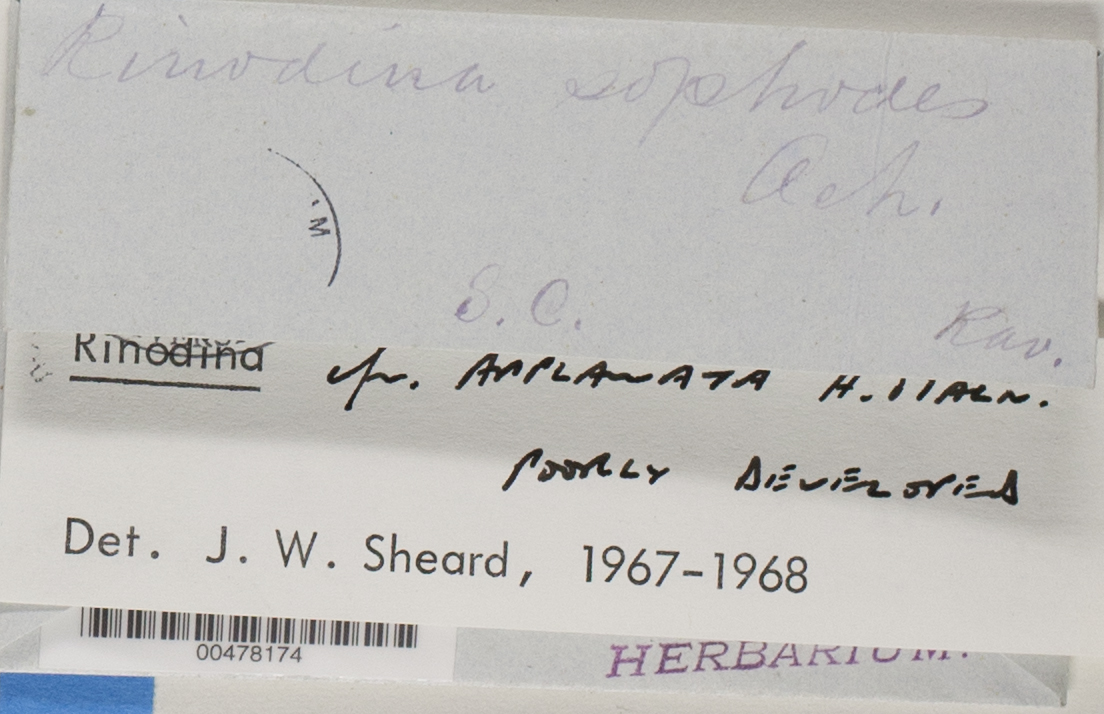 Rinodina sophodes
Ach.
M
S. C. Rav.
Rinodina cfr. APPLANATA H. MAGN.
POORLY DEVELOPED
Det. J. W. Sheard, 1967-1968
00478174
HERBARIUM.